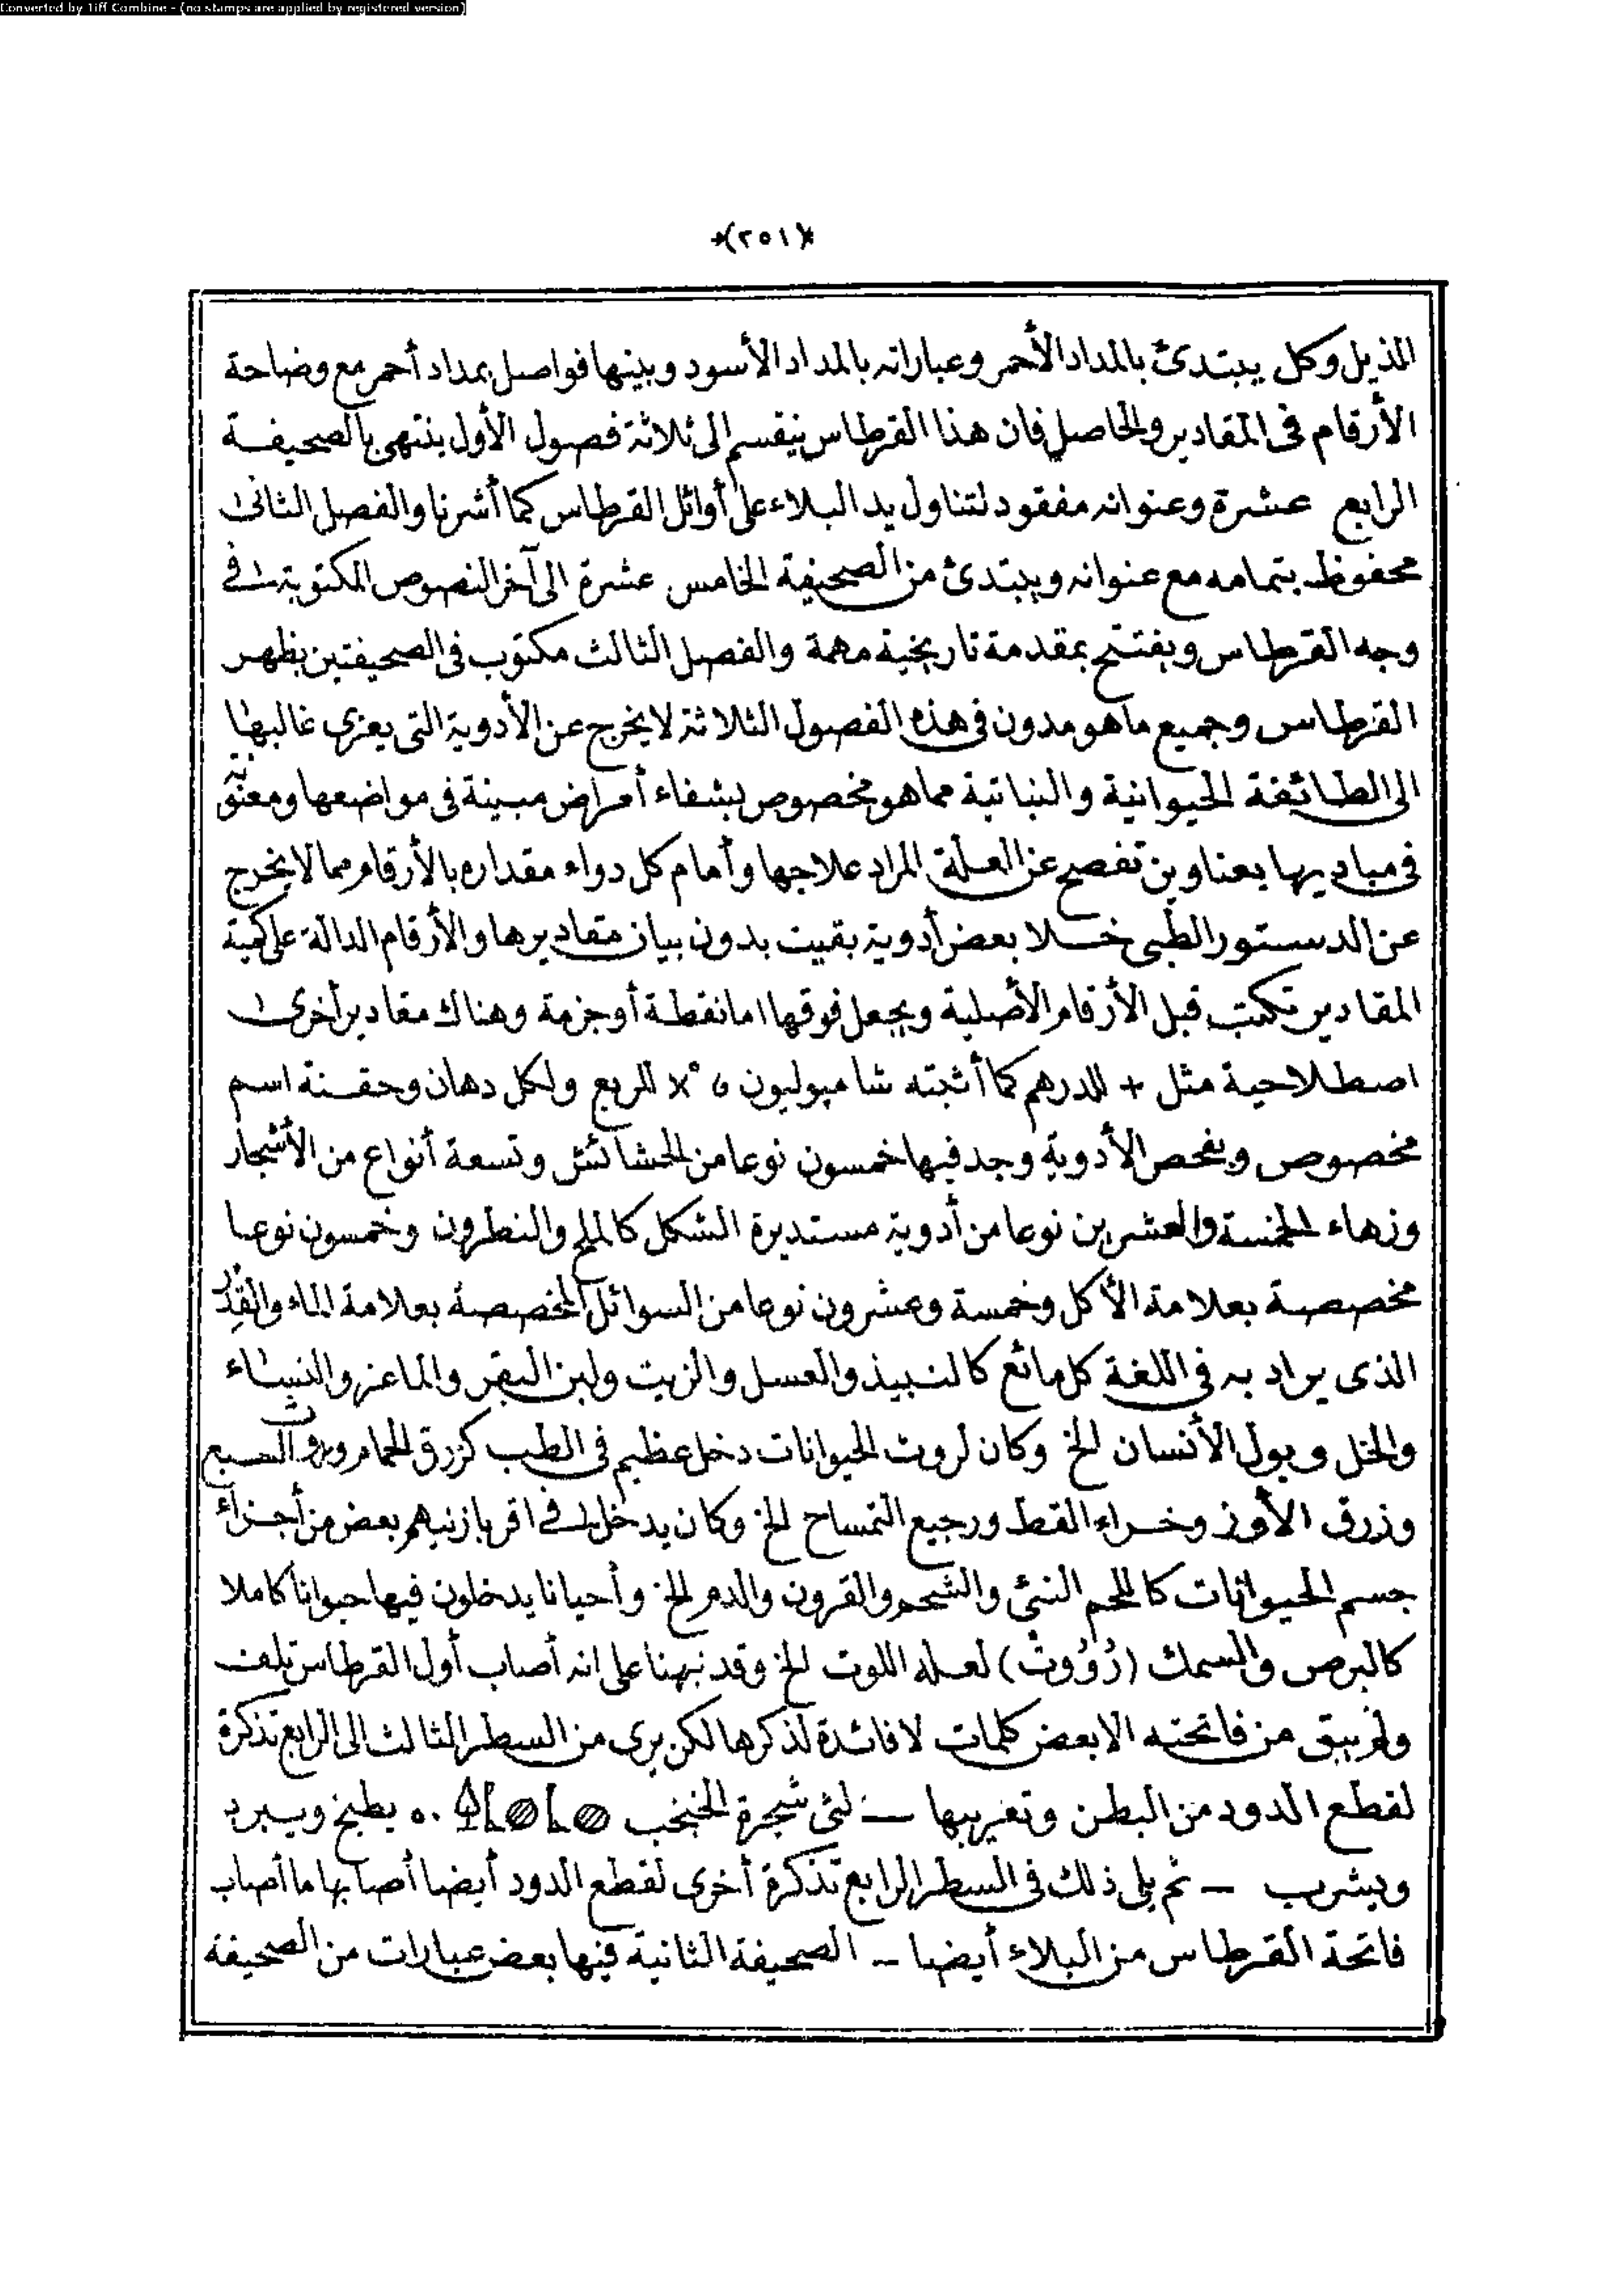 Converted by Tiff Combine - (no stamps are applied by registered version)
*(٢٥١)*
المذيل وكل يبتدئ بالمداد الأحمر وعباراته بالمداد الأسود وبينها فواصل بمداد أحمر مع وضاحة
الأرقام فى المقادير والحاصل فان هذا القرطاس ينقسم الى ثلاثة فصول الأول ينتهى بالصحيفة
الرابع عشرة وعنوانه مفقود لتناول يد البلاء على أوائل القرطاس كما أشرنا والفصل الثانى
محفوظ بتمامه مع عنوانه ويبتدئ من الصحيفة الخامس عشرة الى آخر النصوص المكتوبة فى
وجه القرطاس ويفتتح بمقدمة تاريخية مهمة والفصل الثالث مكتوب فى الصحيفتين بظهر
القرطاس وجميع ما هو مدون فى هذه الفصول الثلاثة لا يخرج عن الأدوية التى يعزى غالبها
الى الطائفة الحيوانية والنباتية مما هو مخصوص بشفاء أمراض مبينة فى مواضعها ومعنونة
فى مباديها بعناوين تفصح عن العلة المراد علاجها وأمام كل دواء مقداره بالأرقام مما لا يخرج
عن الدستور الطبى خلا بعض أدوية بقيت بدون بيان مقاديرها والأرقام الدالة على كمية
المقادير تكتب قبل الأرقام الأصلية ويجعل فوقها اما نقطة أو جزمة وهناك مقادير أخرى
اصطلاحية مثل + للدرهم كما أثبته شامپوليون و ×° للربع ولكل دهان وحقنة اسم
مخصوص وبفحص الأدوية وجد فيها خمسون نوعا من الحشائش وتسعة أنواع من الأشجار
وزهاء الخمسة والعشرين نوعا من أدوية مستديرة الشكل كالملح والنطرون وخمسون نوعا
مخصصة بعلامة الأكل وخمسة وعشرون نوعا من السوائل المخصصة بعلامة الماء والقدر
الذى يراد به فى اللغة كل مائع كالنبيذ والعسل والزيت ولبن البقر والماعز والنساء
والخل وبول الأنسان الخ وكان لروث الحيوانات دخل عظيم فى الطب كزرق الحمام وروث السبع
وذرق الأوز وخراء القط ورجيع التمساح الخ وكان يدخل فى اقربازينهم بعض من أجزاء
جسم الحيوانات كاللحم النئ والشحم والقرون والدم الخ وأحيانا يدخلون فيها حيوانا كاملا
كالبرص والسمك لعله اللوت الخ وقد نبهنا على انه أصاب أول القرطاس تلف
ولم يبق من فاتحته الا بعض كلمات لا فائدة لذكرها لكن يرى من السطر الثالث الى الرابع تذكرة
لقطع الدود من البطن وتعريبها — لثى شجرة يطبخ ويبرد
ويشرب — ثم يلى ذلك فى السطر الرابع تذكرة أخرى لقطع الدود أيضا أصابها ما أصاب
فاتحة القرطاس من البلاء أيضا — الصحيفة الثانية فيها بعض عبارات من الصحيفة